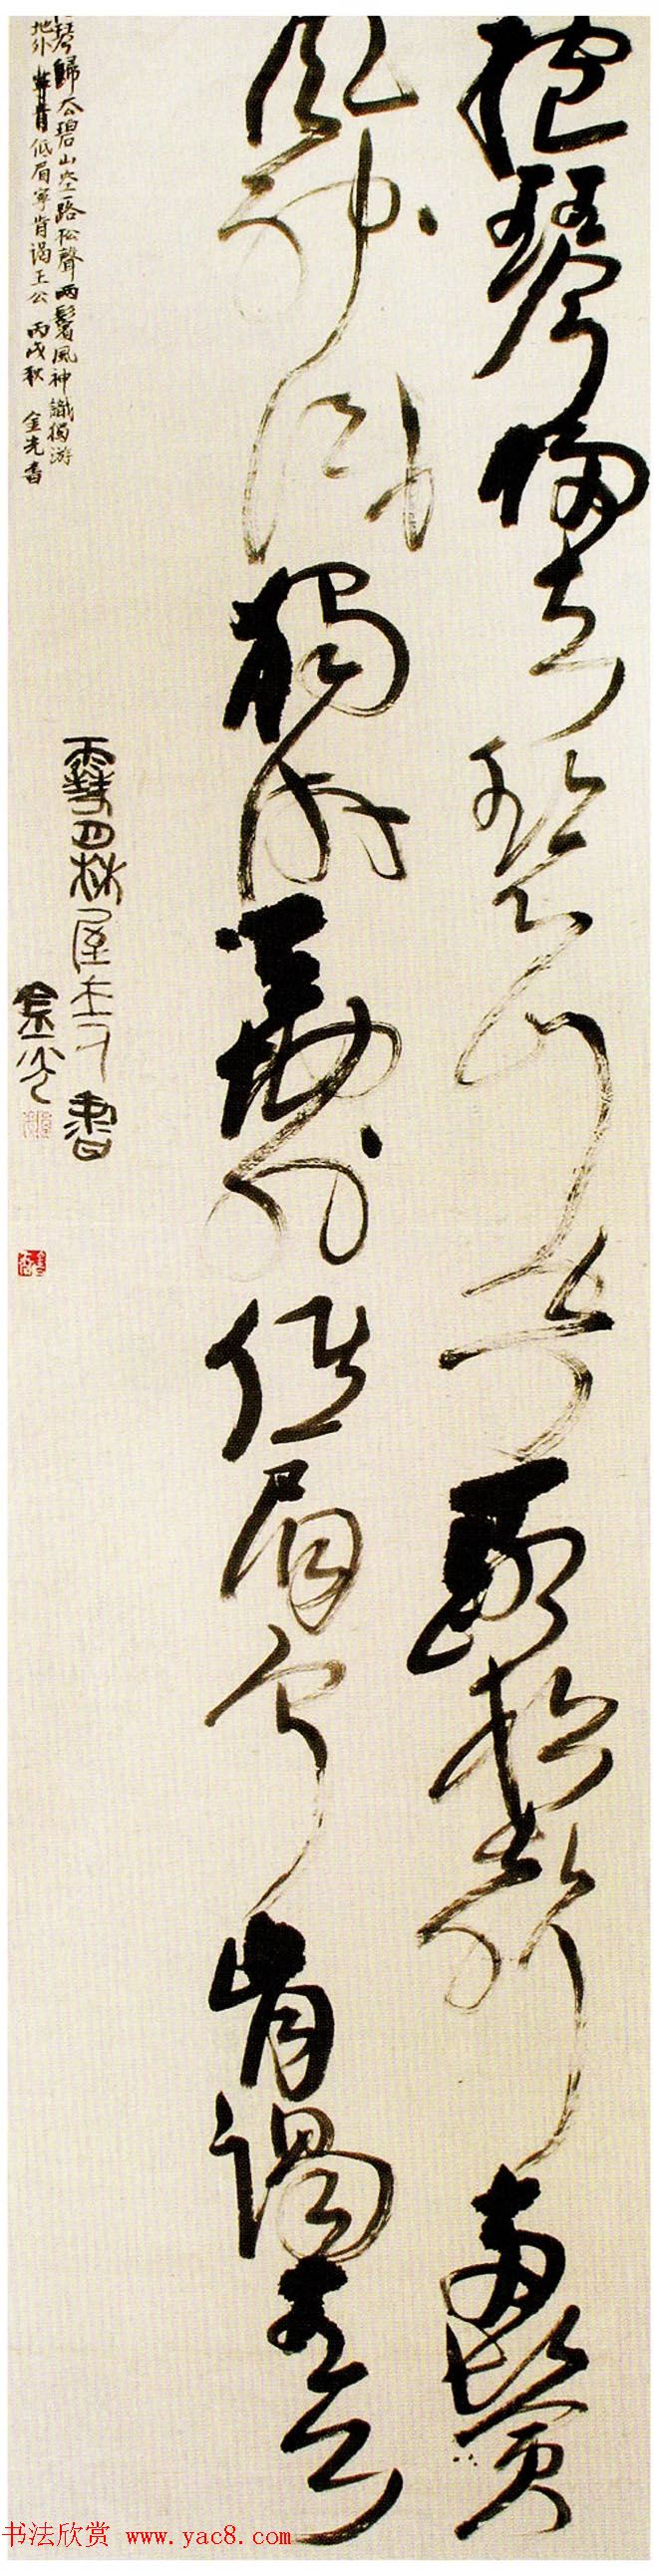 抱琴歸去碧山空一路松聲兩鬢
風神識獨游天地外低眉寧肯謁王公
屋主人書
金光
琴歸去碧山空一路松聲兩鬢風神識獨游
地外低眉寧肯謁王公 丙戌秋 金光書
书法欣赏 www.yac8.com